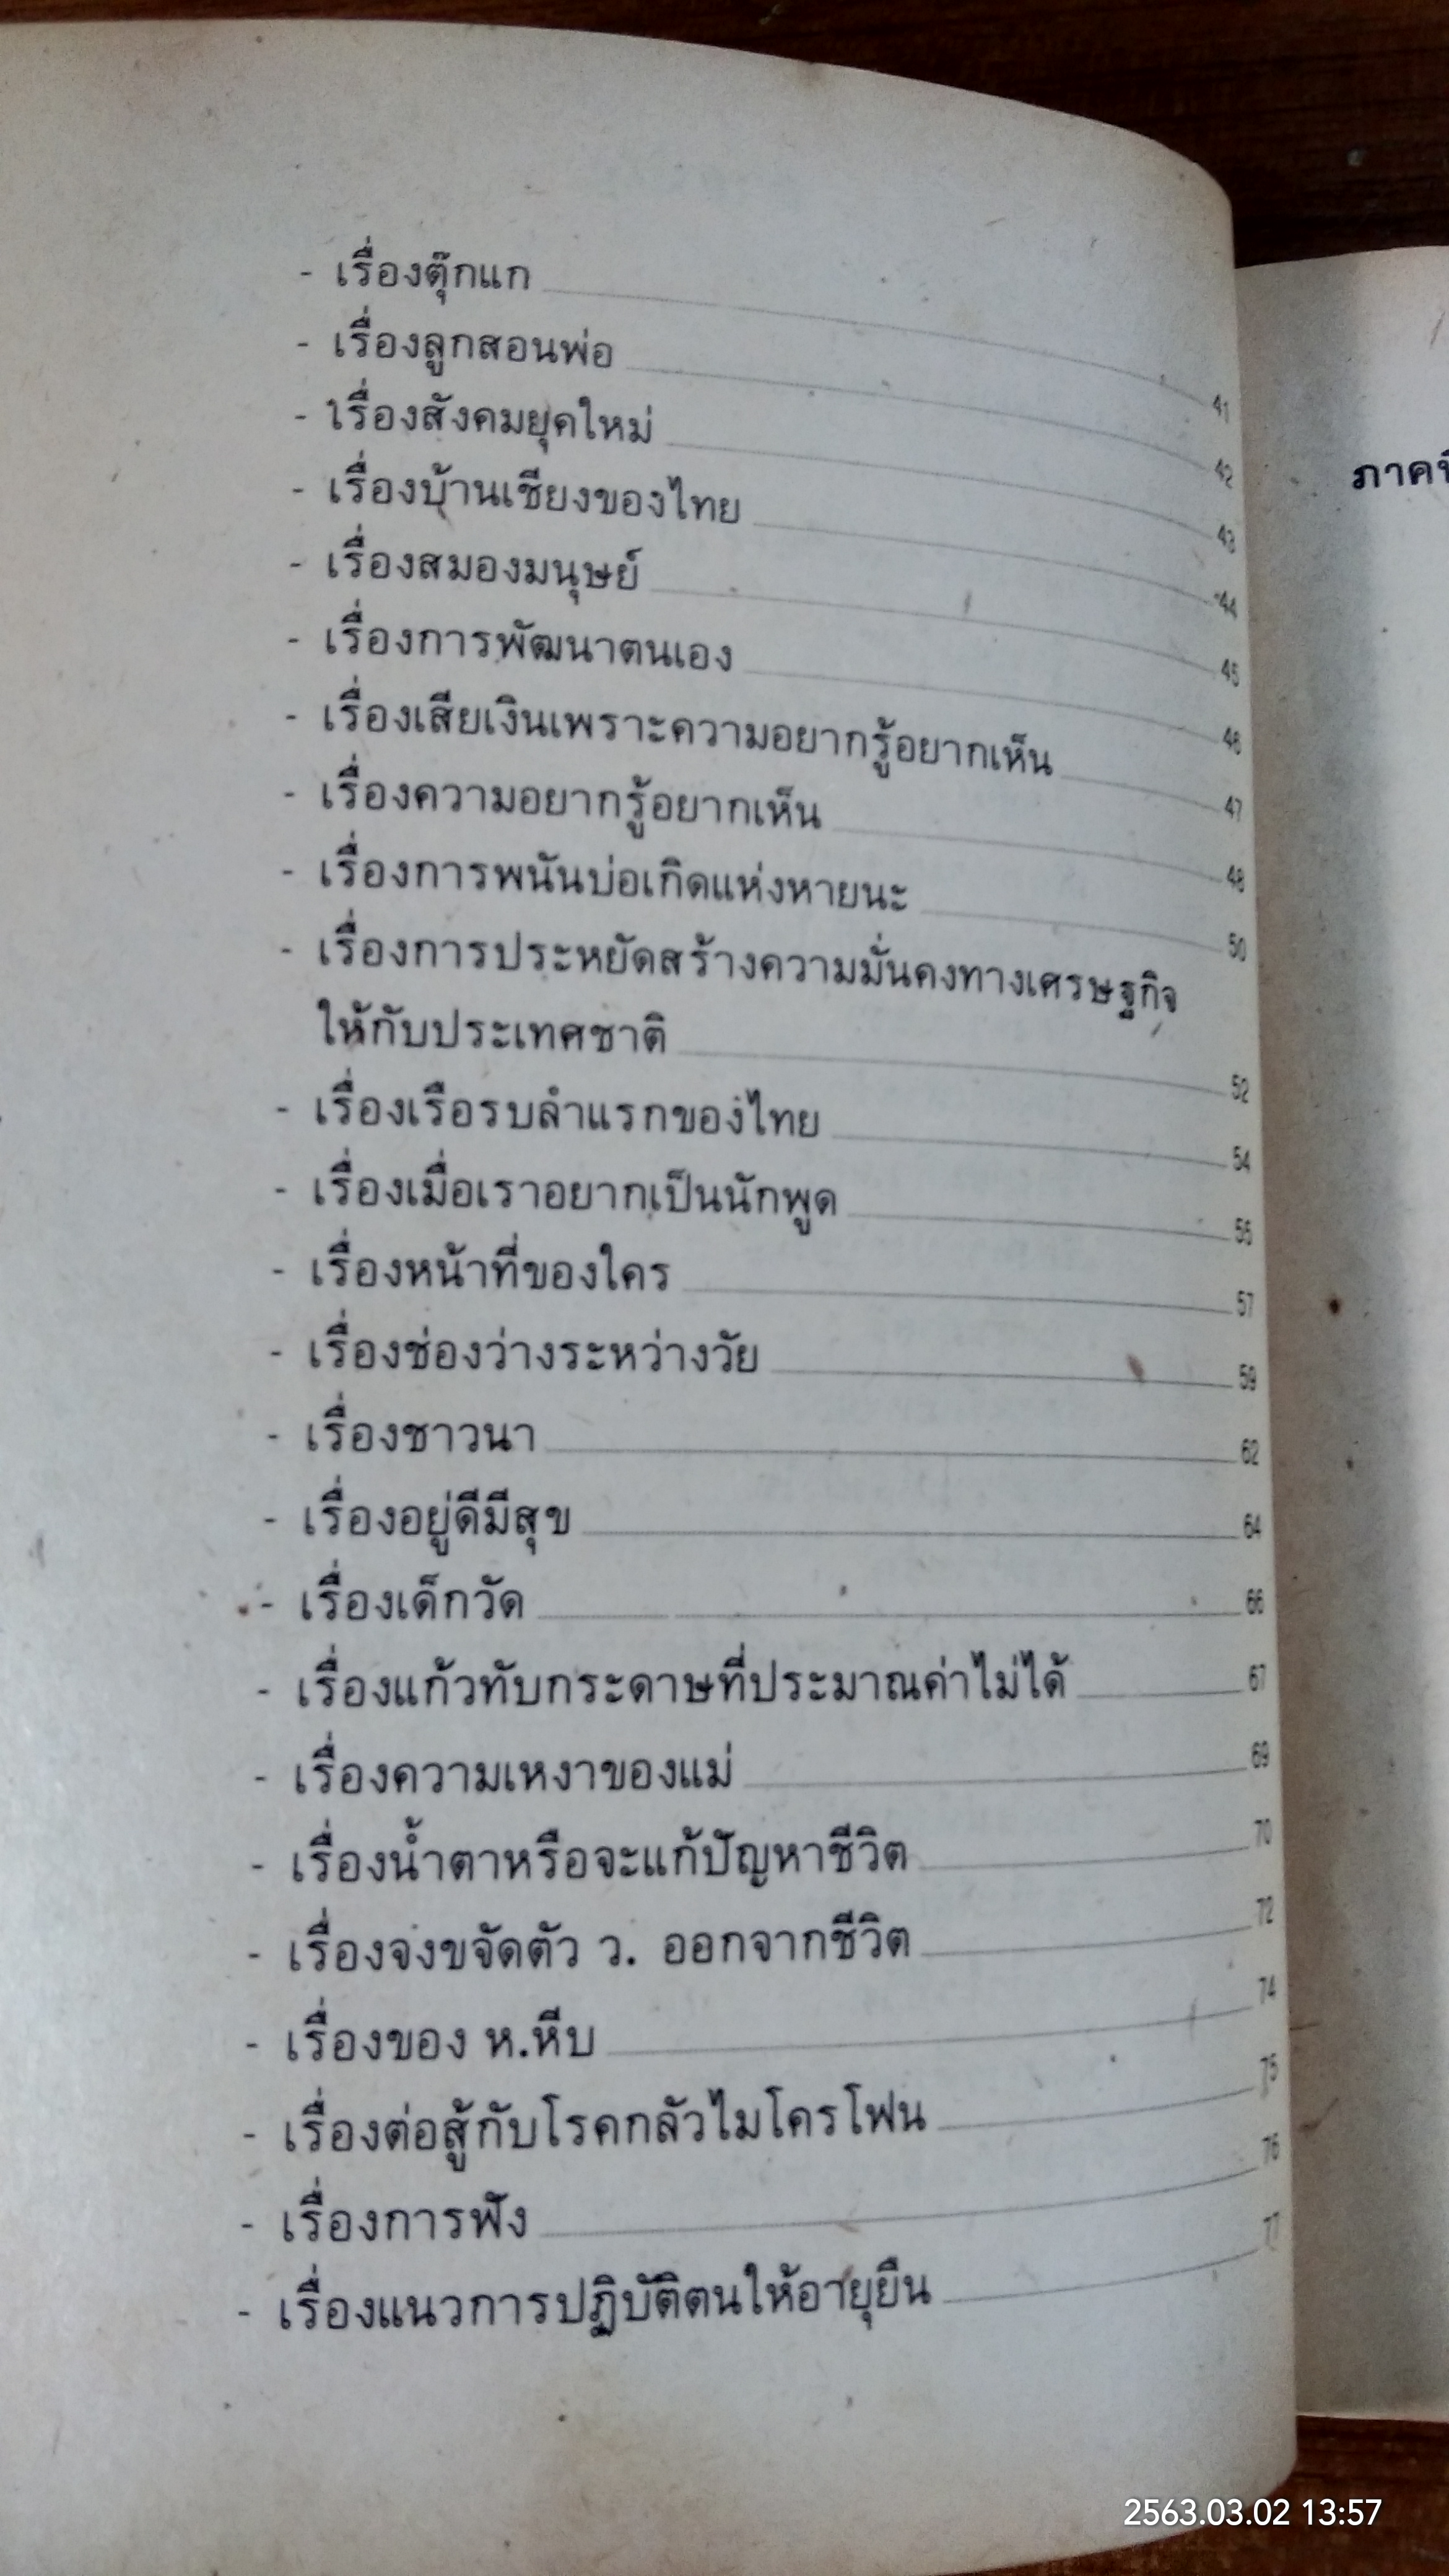 - เรื่องตุ๊กแก 41
- เรื่องลูกสอนพ่อ 42
- เรื่องสังคมยุคใหม่ 43
- เรื่องบ้านเชียงของไทย 44
- เรื่องสมองมนุษย์ 45
- เรื่องการพัฒนาตนเอง 46
- เรื่องเสียเงินเพราะความอยากรู้อยากเห็น 47
- เรื่องความอยากรู้อยากเห็น 48
- เรื่องการพนันบ่อเกิดแห่งหายนะ 50
- เรื่องการประหยัดสร้างความมั่นคงทางเศรษฐกิจ
ให้กับประเทศชาติ 52
- เรื่องเรือรบลำแรกของไทย 54
- เรื่องเมื่อเราอยากเป็นนักพูด 55
- เรื่องหน้าที่ของใคร 57
- เรื่องช่องว่างระหว่างวัย 59
- เรื่องชาวนา 62
- เรื่องอยู่ดีมีสุข 64
- เรื่องเด็กวัด 66
- เรื่องแก้วทับกระดาษที่ประมาณค่าไม่ได้ 67
- เรื่องความเหงาของแม่ 69
- เรื่องน้ำตาหรือจะแก้ปัญหาชีวิต 70
- เรื่องจงขจัดตัว ว. ออกจากชีวิต 72
- เรื่องของ ห.หีบ 74
- เรื่องต่อสู้กับโรคกลัวไมโครโฟน 75
- เรื่องการฟัง 76
- เรื่องแนวการปฏิบัติตนให้อายุยืน 77
2563.03.02 13:57